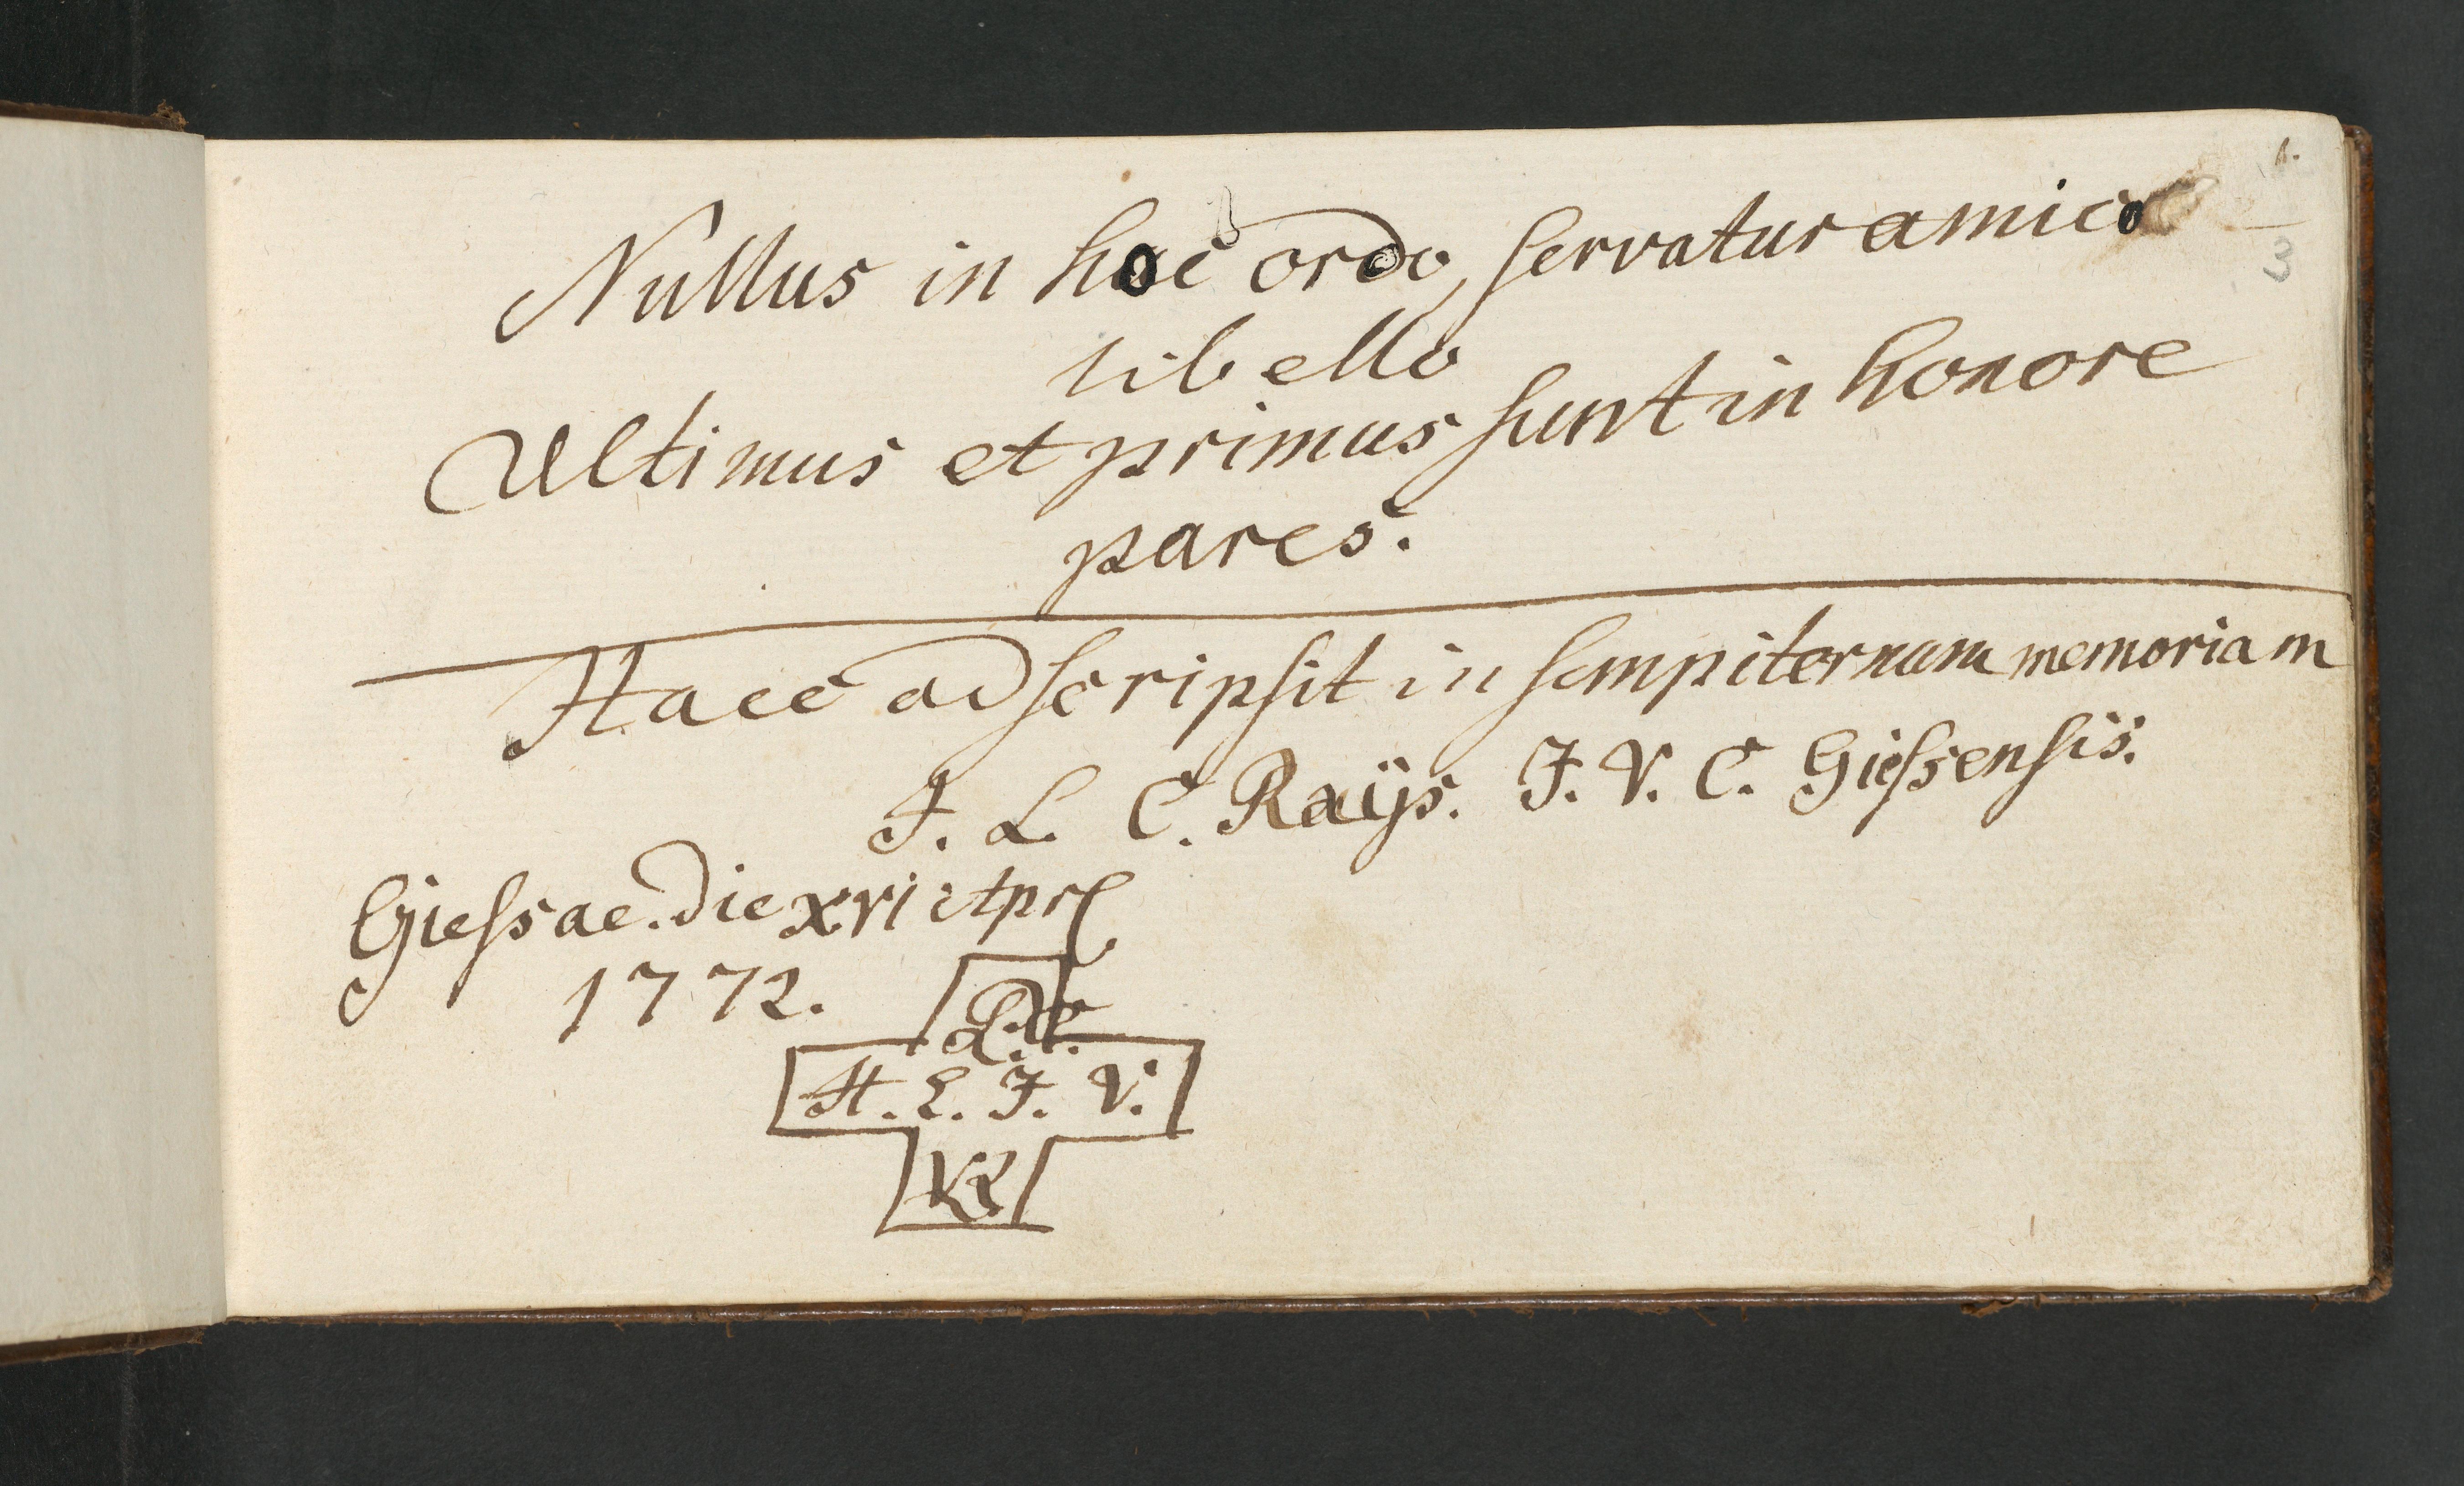 1.
3
Nullus in hoc ordo servatur amico
libello
Ultimus et primus sunt in honore
pares.
Haec adscripsit in sempiternam memoriam
J. L. C. Raÿs. J. V. C. Giessensis.
Giessae. die xvi Apr
1772.
H. E. J. V.